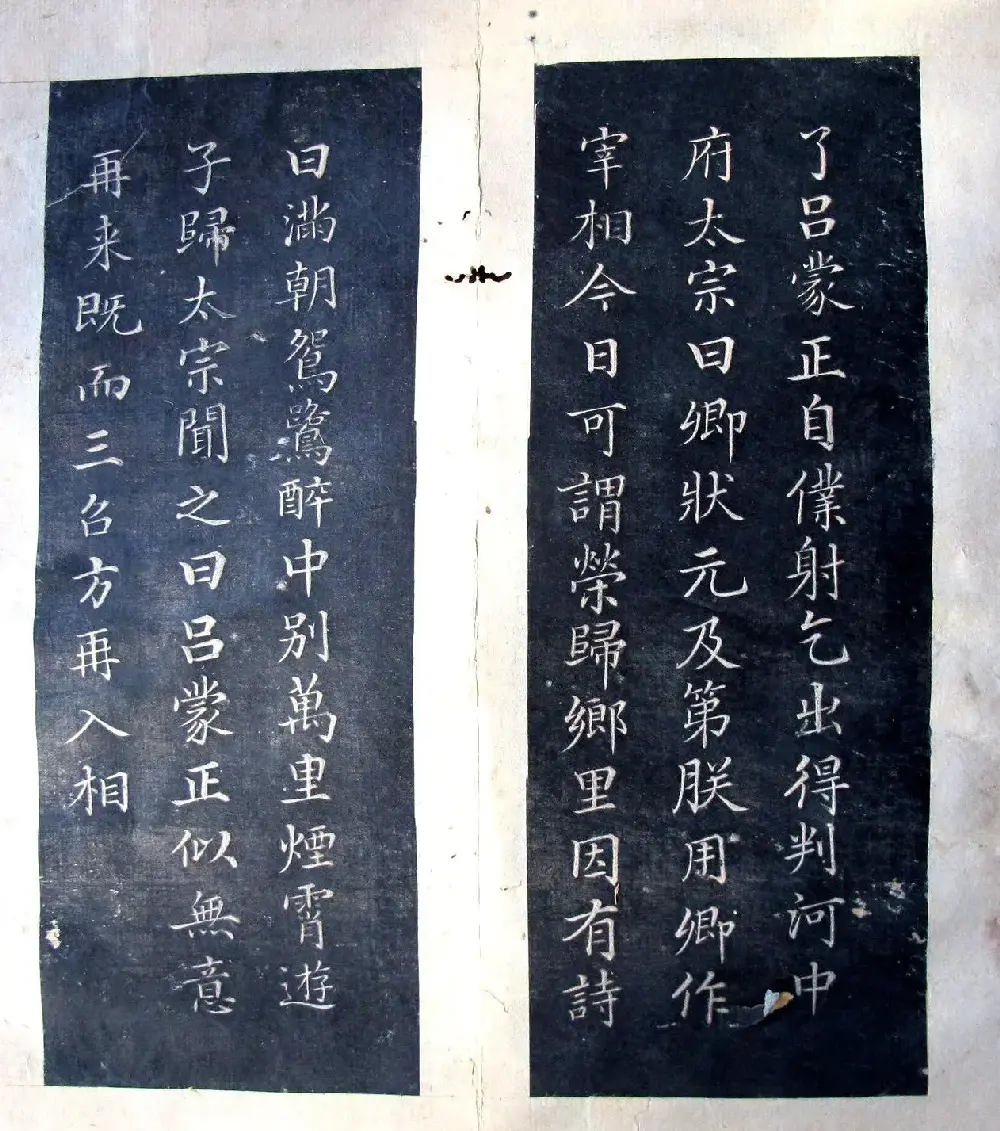 了呂蒙正自僕射乞出得判河中
府太宗曰卿狀元及第朕用卿作
宰相今日可謂榮歸鄉里因有詩
曰滿朝鴛鷺醉中別萬里煙霄遊
子歸太宗聞之曰呂蒙正似無意
再来既而三召方再入相